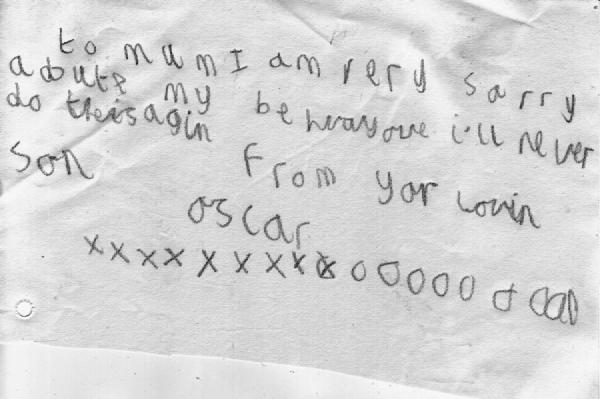 to mum I am very sarry
adbute my behuayoure i'll never
do theis agin
From yor lovin
son
oscar
xxxxxxxxx oooooo